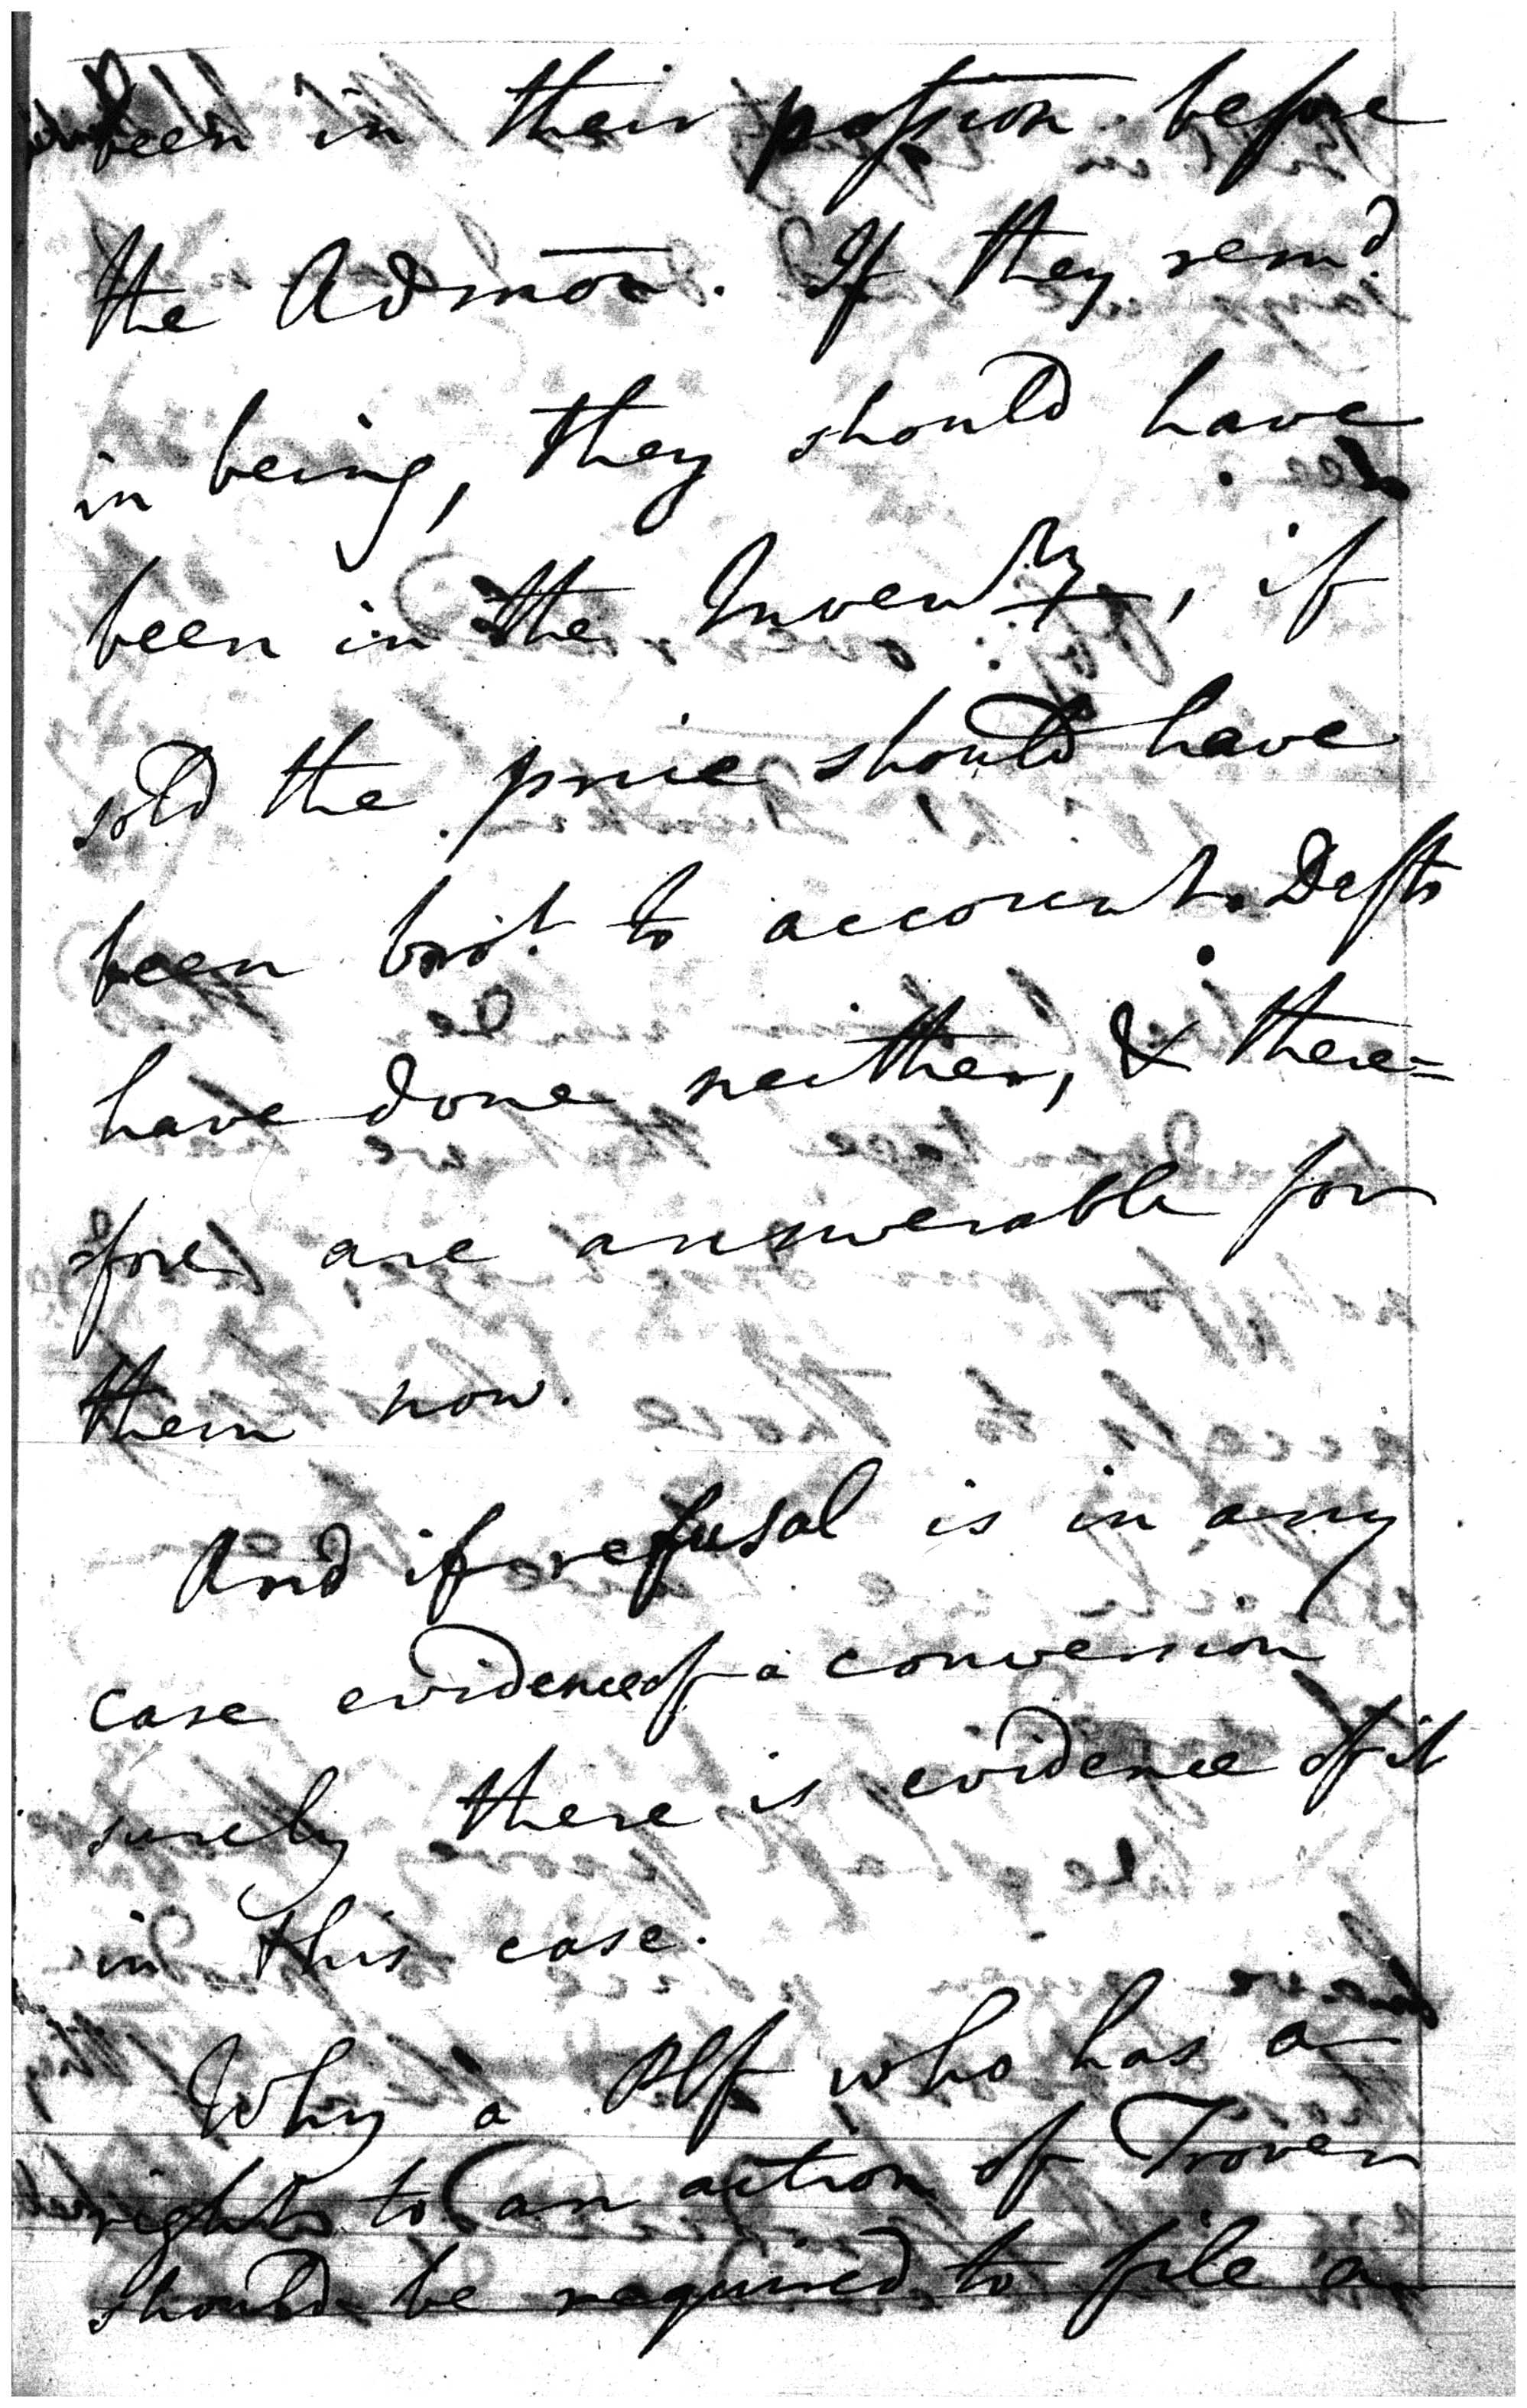 been in their possion before
the Admon. If they remd.
in being, they should have
been in the Inventry, if
sold the price should have
been brot. to account. Defts
have done neither, & there=
=fore are answerable for
them now.
And if refusal is in any
case evidence of a conversion
surely there is evidence of it
in this case.
Why a Plf who has a
right to an action of Trover
should be required to file a